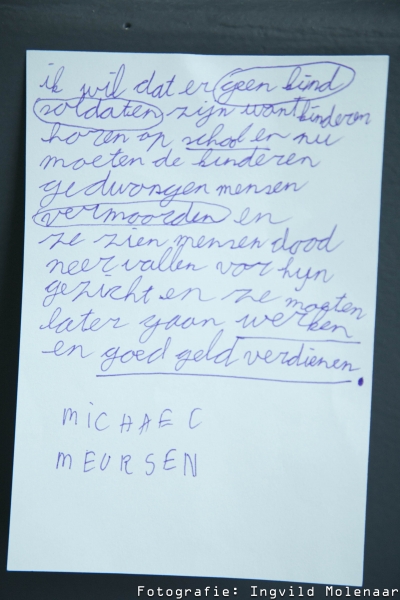 ik wil dat er geen kind
soldaten zijn want kinderen
horen op school en nu
moeten de kinderen
gedwongen mensen
vermoorden en
ze zien mensen dood
neervallen vor hun
gezicht en ze moeten
later gaan werken
en goed geld verdienen.
MiCHAEL
MEURSEN
Fotografie: Ingvild Molenaar